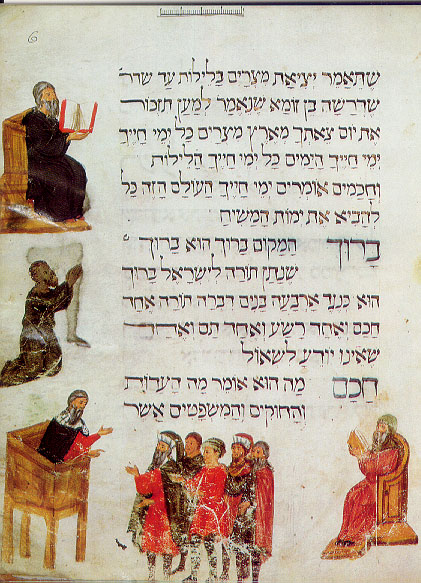 6
שתאמר יציאת מצרים בלילות עד שדר
שדרשה בן זומא שנאמר למען תזכור
את יום צאתך מארץ מצרים כל ימי חייך
ימי חייך הימים כל ימי חייך הלילות
וחכמים אומרים ימי חייך העולם הזה כל
להביא את ימות המשיח
ברוך המקום ברוך הוא ברוך
שנתן תורה לישראל ברוך
הוא כנגד ארבעה בנים דברה תורה אחד
חכם ואחד רשע ואחד תם ואחד
שאינו יודע לשאול
חכם מה הוא אומר מה העדות
והחוקים והמשפטים אשר